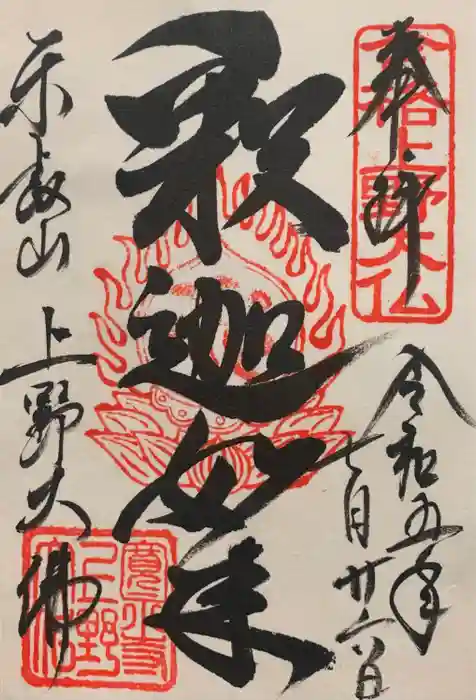 奉拝
上野大仏
令和五年
七月廿六日
釈迦如来
東叡山 上野大佛
寛永寺
上野
大佛